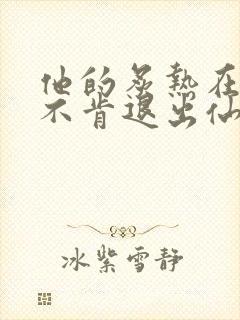 他的炙熱在
不肯退出仙
冰紫雪静